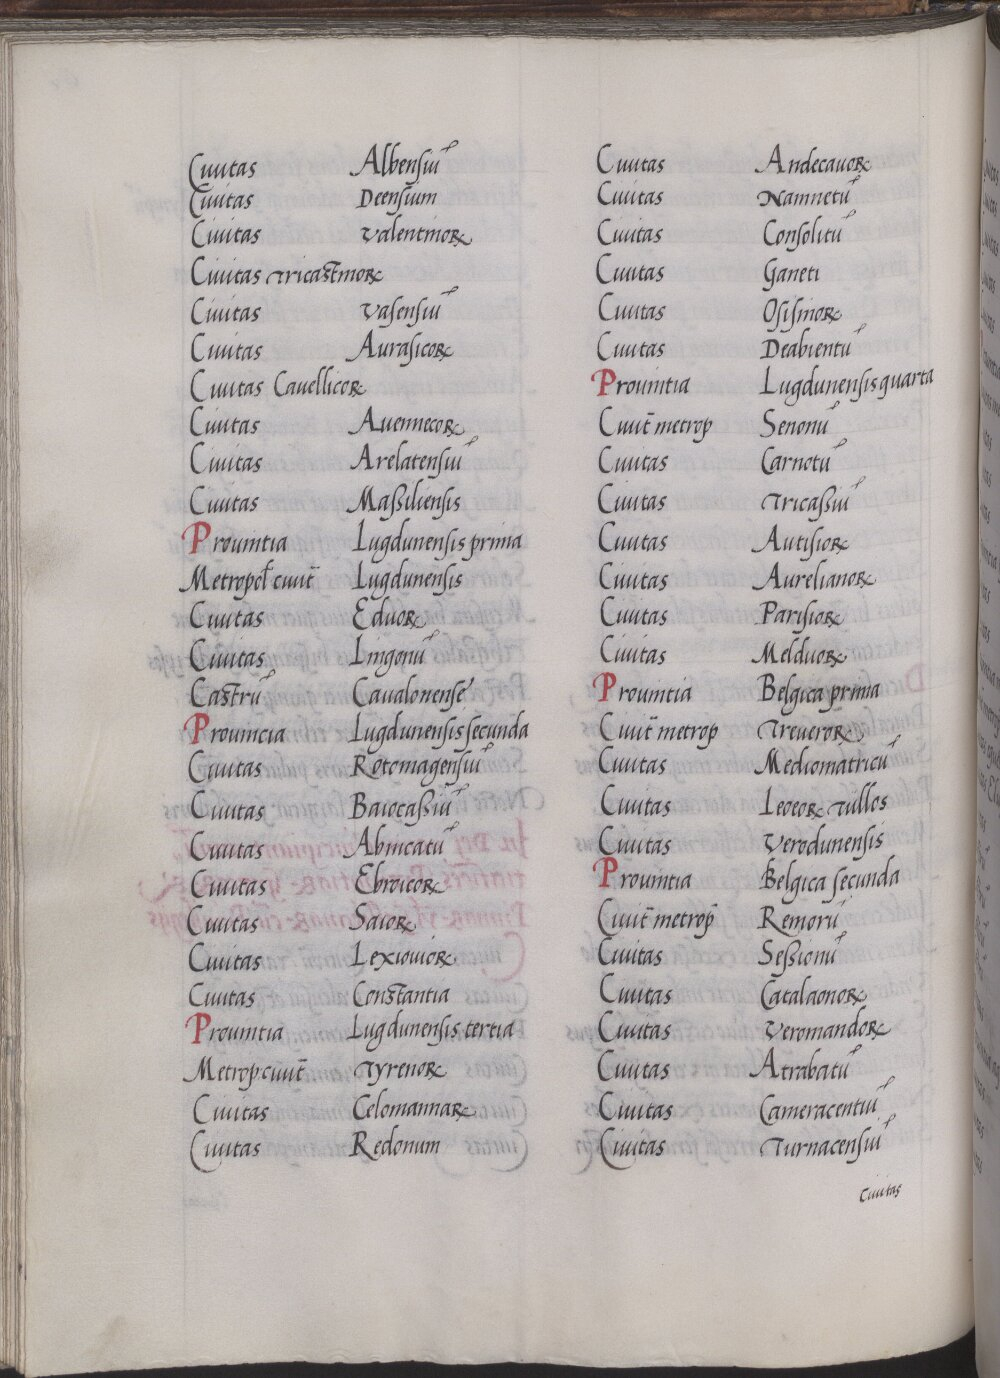 Ciuitas Albensiū
Ciuitas Deensium
Ciuitas Valentinoꝝ
Ciuitas Tricastinoꝝ
Ciuitas Vasensiū
Ciuitas Aurasicoꝝ
Ciuitas Cauellicoꝝ
Ciuitas Auennecoꝝ
Ciuitas Arelatensiū
Ciuitas Maßiliensis
Prouintia Lugdunensis prima
Metropoł ciuit̄ Lugdunensis
Ciuitas Eduoꝝ
Ciuitas Lingonū
Castrū Caualonense
Prouincia Lugdunensis secunda
Ciuitas Rotomagensiū
Ciuitas Baiocaßiū
Ciuitas Abincatū
Ciuitas Ebroicoꝝ
Ciuitas Saioꝝ
Ciuitas Lexiouioꝝ
Ciuitas Constantia
Prouintia Lugdunensis tertia
Metrop ciuit̄ Tyrenoꝝ
Ciuitas Celomannaꝝ
Ciuitas Redonum
Ciuitas Andecauoꝝ
Ciuitas Namnetū
Ciuitas Consolitū
Ciuitas Ganeti
Ciuitas Osisinoꝝ
Ciuitas Deabientū
Prouintia Lugdunensis quarta
Ciuit̄ metrop Senonū
Ciuitas Carnotū
Ciuitas Tricaßiū
Ciuitas Autisioꝝ
Ciuitas Aurelianoꝝ
Ciuitas Parisioꝝ
Ciuitas Melduoꝝ
Prouintia Belgica prima
Ciuit̄ metrop Treueroꝝ
Ciuitas Mediomatricū
Ciuitas Leoeoꝝ Tullos
Ciuitas Verodunensis
Prouintia Belgica secunda
Ciuit̄ metrop̄ Remorū
Ciuitas Seßionū
Ciuitas Catalaonoꝝ
Ciuitas Veromandoꝝ
Ciuitas Atrabatū
Ciuitas Cameracentiū
Ciuitas Turnacensiū
Ciuitas